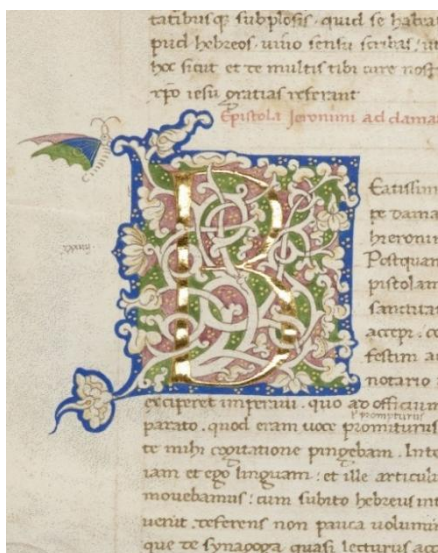 tatibusq subplosis. quid se habea
pud hebreos. uiuo sensu scribas. ut
hoc sicut et te multis tibi cure nostr
xpo iesu gratias referant
Epistola Ieronimi ad dama
B
Eatissim
pe dama
hieronim
Postquam
pistolam
sanctitat
accepi. co
festim ac
notario
exciperet imperaui. quo ad officium
prompturus
parato. quod eram uoce promiturus
te mihi cogitatione pingebam. Inte
iam et ego linguam: et ille articulu
mouebamus: cum subito hebreus int
uenit. referens non pauca volumin
que de synagoga quasi lecturus acc